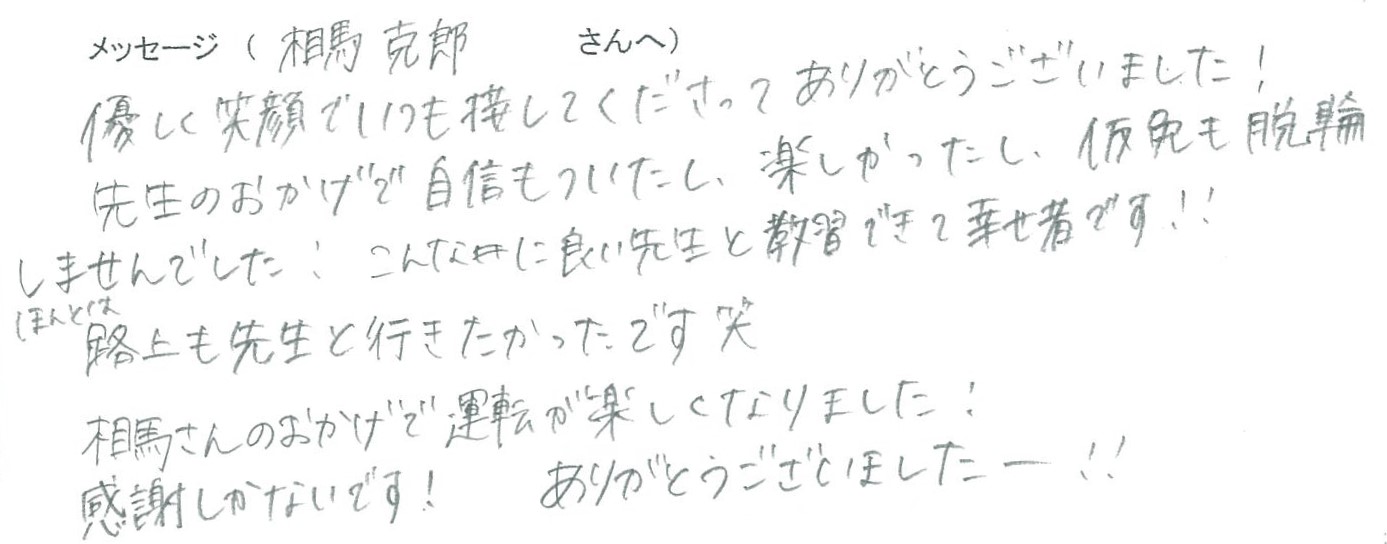 メッセージ ( 相馬 克郎 さんへ)
優しく笑顔でいつも接してくださって ありがとうございました!
先生のおかげで自信もついたし、楽しかったし、仮免も脱輪
しませんでした! こんなに良い先生と教習できて幸せ者です!!
ほんとは
路上も先生と行きたかったです笑
相馬さんのおかげで運転が楽しくなりました!
感謝しかないです! ありがとうございましたー!!